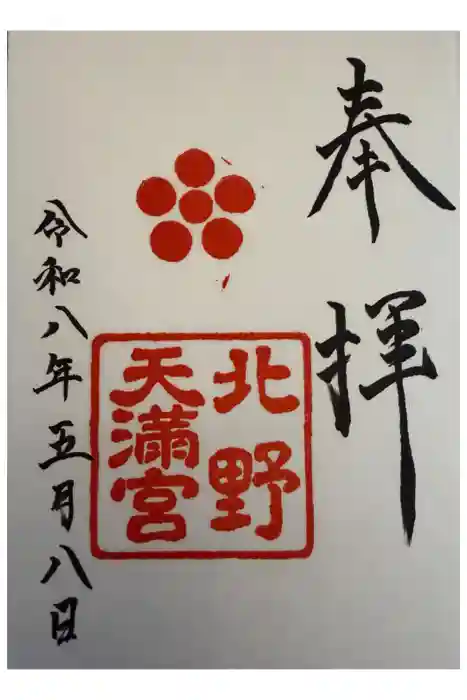 奉拝
北野
天満宮
令和八年五月八日